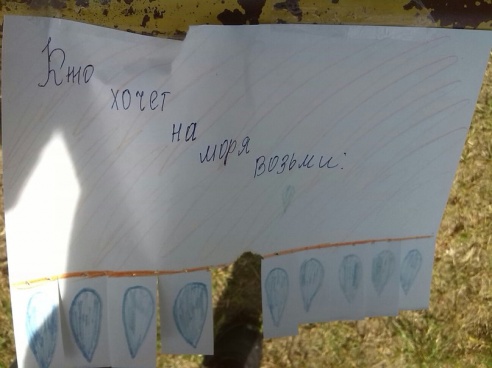 Кто
хочет
на
моря
возьми: